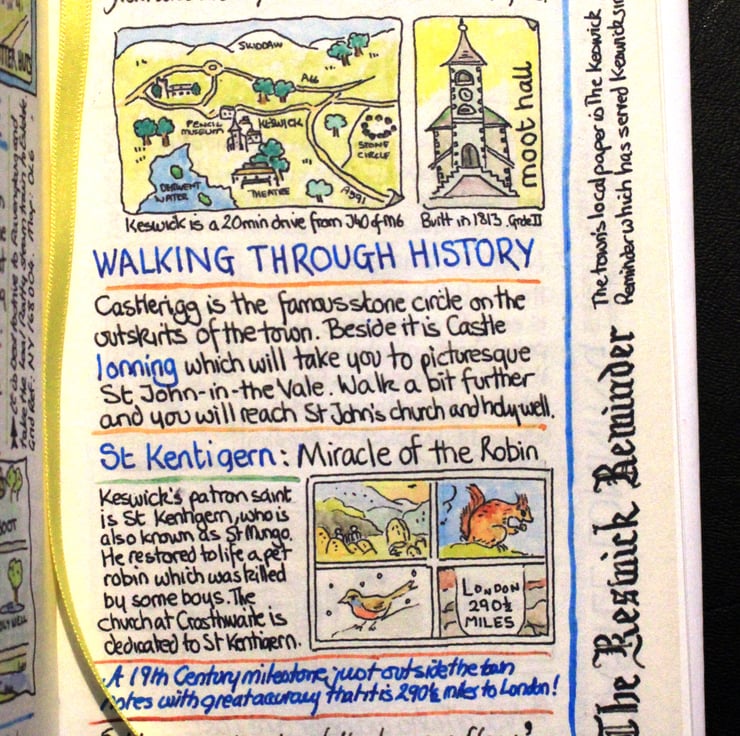 SKIDDAW
A66
PENCIL
MUSEUM
KESWICK
STONE
CIRCLE
DERWENT
WATER
THEATRE
A591
moot hall
Keswick is a 20min drive from J40 of M6
Built in 1813. Grade II
WALKING THROUGH HISTORY
Castlerigg is the famous stone circle on the
outskirts of the town. Beside it is Castle
lonning which will take you to picturesque
St John-in-the Vale. Walk a bit further
and you will reach St John's church and holy well.
St Kentigern: Miracle of the Robin
Keswick's patron saint
is St Kentigern, who is
also known as St Mungo.
He restored to life a pet
robin which was killed
by some boys. The
church at Crosthwaite is
dedicated to St Kentigern.
LONDON
290½
MILES
A 19th Century milestone just outside the town
notes with great accuracy that it is 290½ miles to London!
The town's local paper is The Keswick
Reminder which has served Keswick
The Keswick Reminder